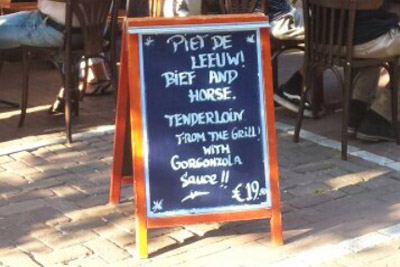 PIET DE
LEEUW!
BIEF AND
HORSE.
TENDERLOIN
FROM THE GRILL!
WITH
GORGONZOLA
SAUCE!!
€19,50